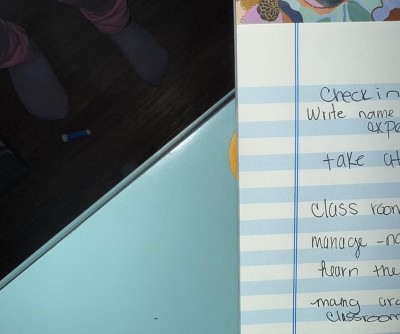 Check in
Write name
expe
take at
class room
manage - no
learn the
many aro
classroom